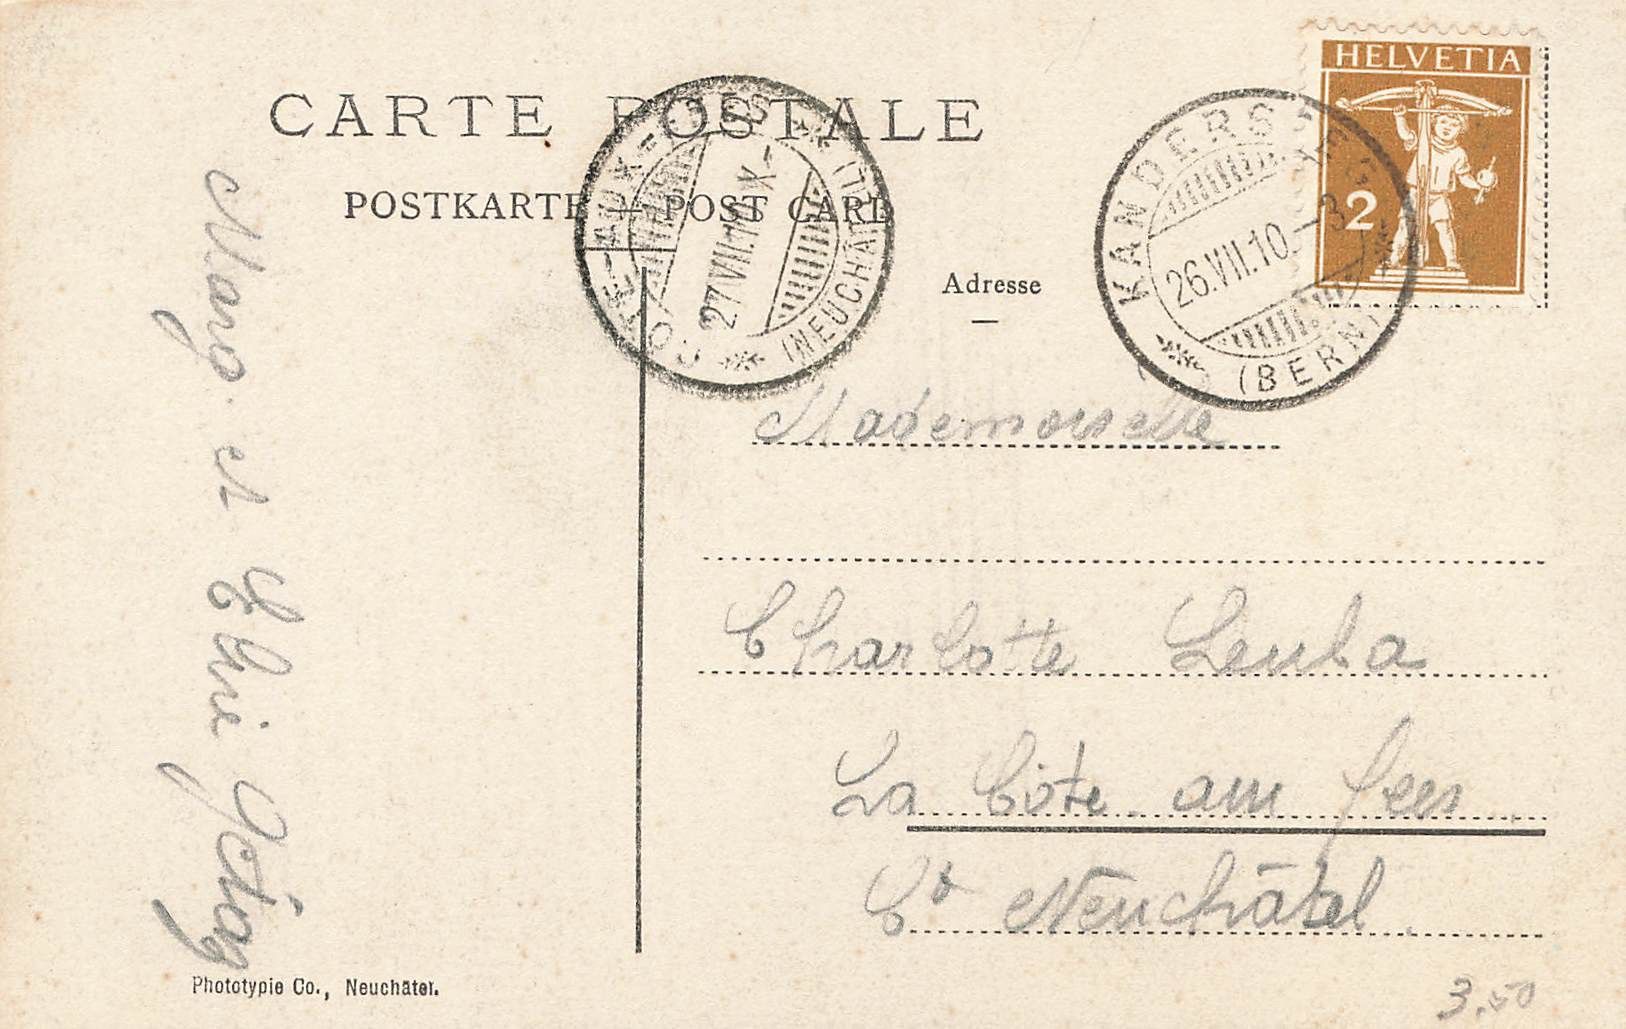 HELVETIA
2
CARTE POSTALE
POSTKARTE — POST CARD
CÔTE-AUX-FÉES (NEUCHÂTEL)
27.VII.10.X-
KANDERSTEG (BERN)
26.VII.10.-3
Adresse
Mademoiselle
Charlotte Leuba
La Côte aux fées
Ct Neuchâtel
et
Phototypie Co., Neuchâtel.
3.50